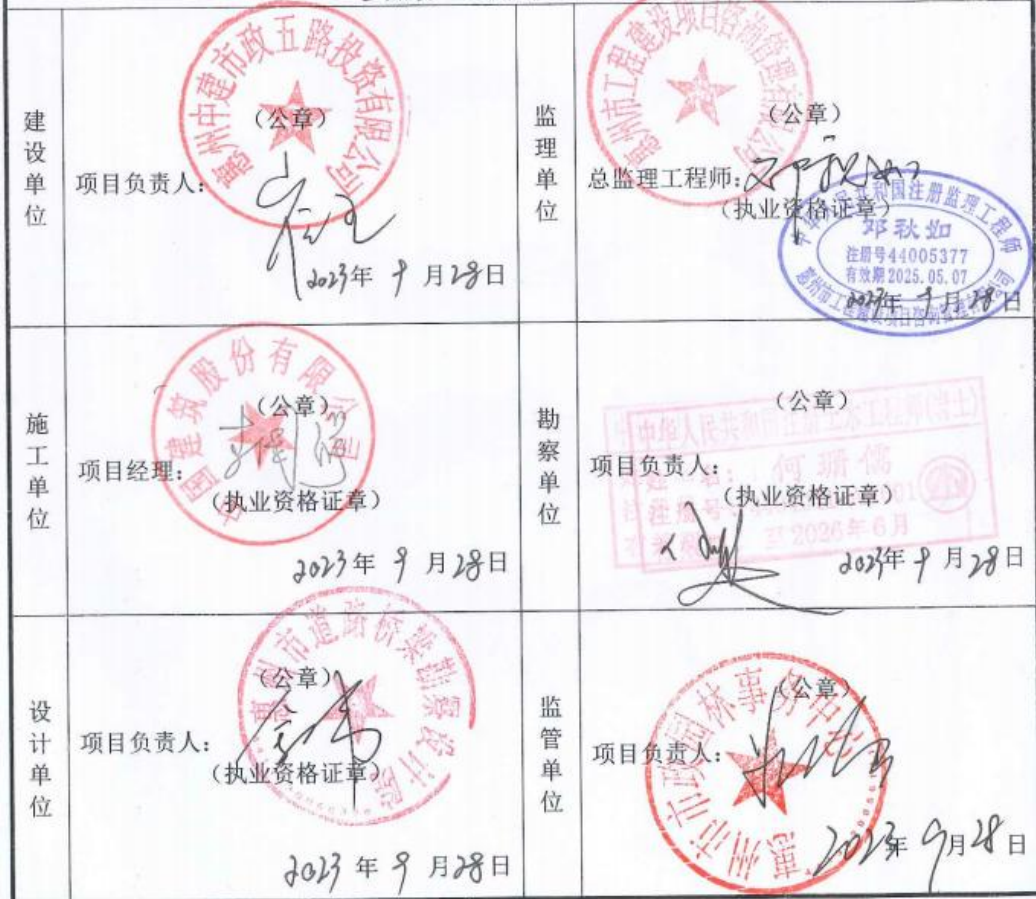 建设单位
惠州中建市政五路投资有限公司
(公章)
项目负责人:
2023年 9月28日
监理单位
惠州市工程建设项目咨询管理有限公司
(公章)
总监理工程师:邓秋如
(执业资格证章)
中华人民共和国注册监理工程师
邓秋如
注册号44005377
有效期2025.05.07
惠州市工程建设项目咨询管理有限公司
2023年 9月28日
施工单位
中国建筑股份有限公司
(公章)
项目经理:
(执业资格证章)
2023年 9月28日
勘察单位
(公章)
中华人民共和国注册土木工程师(岩土)
项目负责人:
姓名: 何珊儒
(执业资格证章)
注册号
至2026年6月
2023年 9月28日
设计单位
惠州市道路桥梁勘察设计院
(公章)
项目负责人:
(执业资格证章)
2023年 9月28日
监管单位
惠州市市政园林事务中心
(公章)
项目负责人:
2023年 9月28日